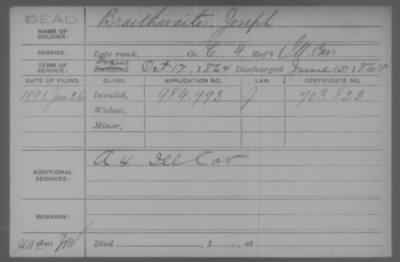 DEAD
NAME OF SOLDIER: Braithwaite, Joseph
SERVICE: Late rank, Co. C, 4 Reg't Ill Cav
TERM OF SERVICE: Trans Enlisted Oct 17, 1864 Discharged June 15, 1865
DATE OF FILING. CLASS. APPLICATION NO. LAW. CERTIFICATE NO.
1891 Jan 26 Invalid, 984.993 J. 703.823
Widow,
Minor,
ADDITIONAL SERVICES: A 4 Ill Cav
REMARKS:
Died , 1 , at